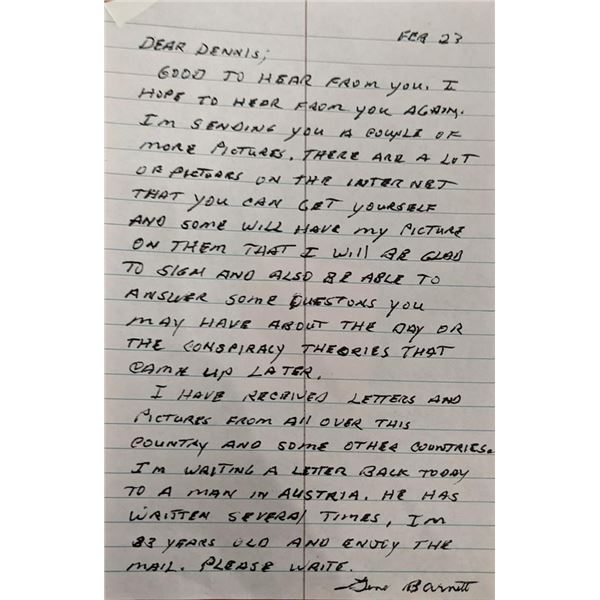 FEB 23
DEAR DENNIS;
GOOD TO HEAR FROM YOU. I
HOPE TO HEAR FROM YOU AGAIN.
I'M SENDING YOU A COUPLE OF
MORE PICTURES. THERE ARE A LOT
OF PICTUORS ON THE INTERNET
THAT YOU CAN GET YOURSELF
AND SOME WILL HAVE MY PICTURE
ON THEM THAT I WILL BE GLAD
TO SIGN AND ALSO BE ABLE TO
ANSWER SOME QUESTONS YOU
MAY HAVE ABOUT THE DAY OR
THE CONSPIRACY THEORIES THAT
CAME UP LATER.
I HAVE RECEIVED LETTERS AND
PICTURES FROM ALL OVER THIS
COUNTRY AND SOME OTHER COUNTRIES.
I'M WAITING A LETTER BACK TODAY
TO A MAN IN AUSTRIA. HE HAS
WRITTEN SEVERAL TIMES, I'M
83 YEARS OLD AND ENJOY THE
MAIL. PLEASE WRITE.
Gene Barnett